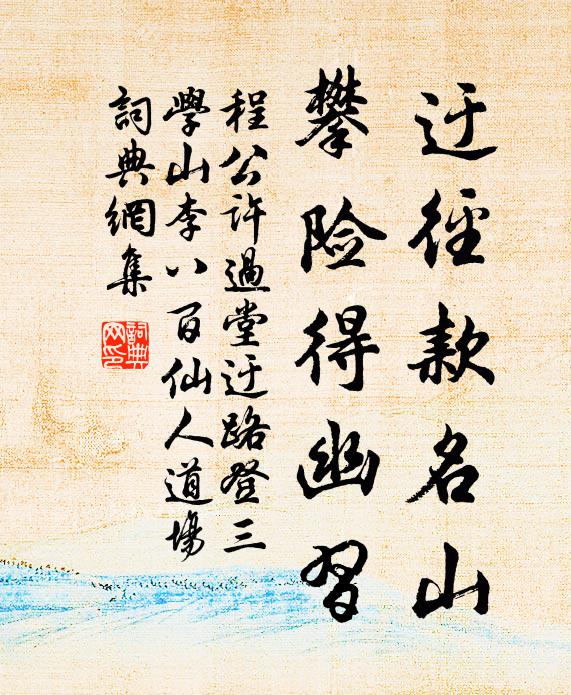 迂徑款名山
攀险得幽習
程公许過堂迂路登三
學山李八百仙人道場
詞典網集
詞典
网印